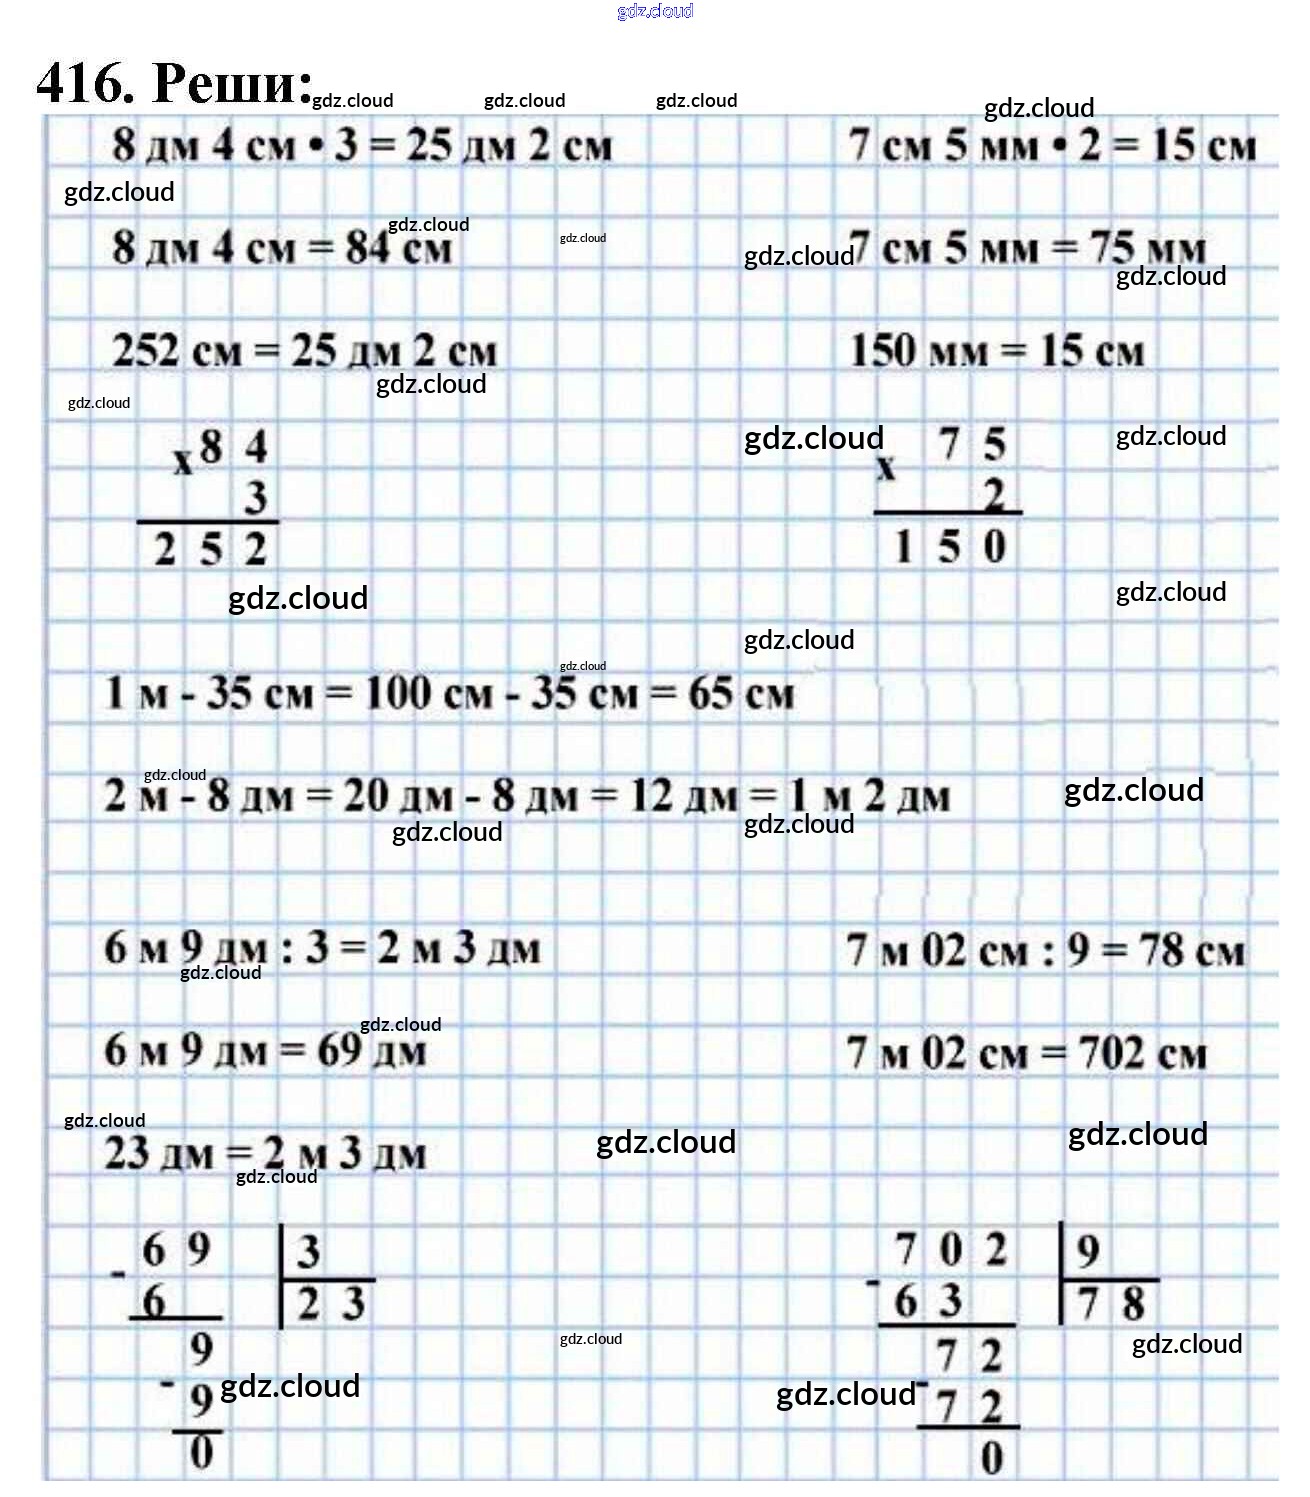 gdz.cloud
416. Реши:
gdz.cloud gdz.cloud gdz.cloud gdz.cloud
8 дм 4 см • 3 = 25 дм 2 см 7 см 5 мм • 2 = 15 см
gdz.cloud
gdz.cloud gdz.cloud
8 дм 4 см = 84 см gdz.cloud 7 см 5 мм = 75 мм
gdz.cloud
252 см = 25 дм 2 см 150 мм = 15 см
gdz.cloud
gdz.cloud
х 8 4 gdz.cloud х 7 5 gdz.cloud
3 2
2 5 2 1 5 0
gdz.cloud gdz.cloud
gdz.cloud
gdz.cloud
1 м - 35 см = 100 см - 35 см = 65 см
gdz.cloud
2 м - 8 дм = 20 дм - 8 дм = 12 дм = 1 м 2 дм gdz.cloud
gdz.cloud gdz.cloud
6 м 9 дм : 3 = 2 м 3 дм 7 м 02 см : 9 = 78 см
gdz.cloud
gdz.cloud
6 м 9 дм = 69 дм 7 м 02 см = 702 см
gdz.cloud
23 дм = 2 м 3 дм gdz.cloud gdz.cloud
gdz.cloud
- 6 9 3 - 7 0 2 9
6 2 3 6 3 7 8
9 gdz.cloud 7 2 gdz.cloud
- 9 gdz.cloud gdz.cloud - 7 2
0 0